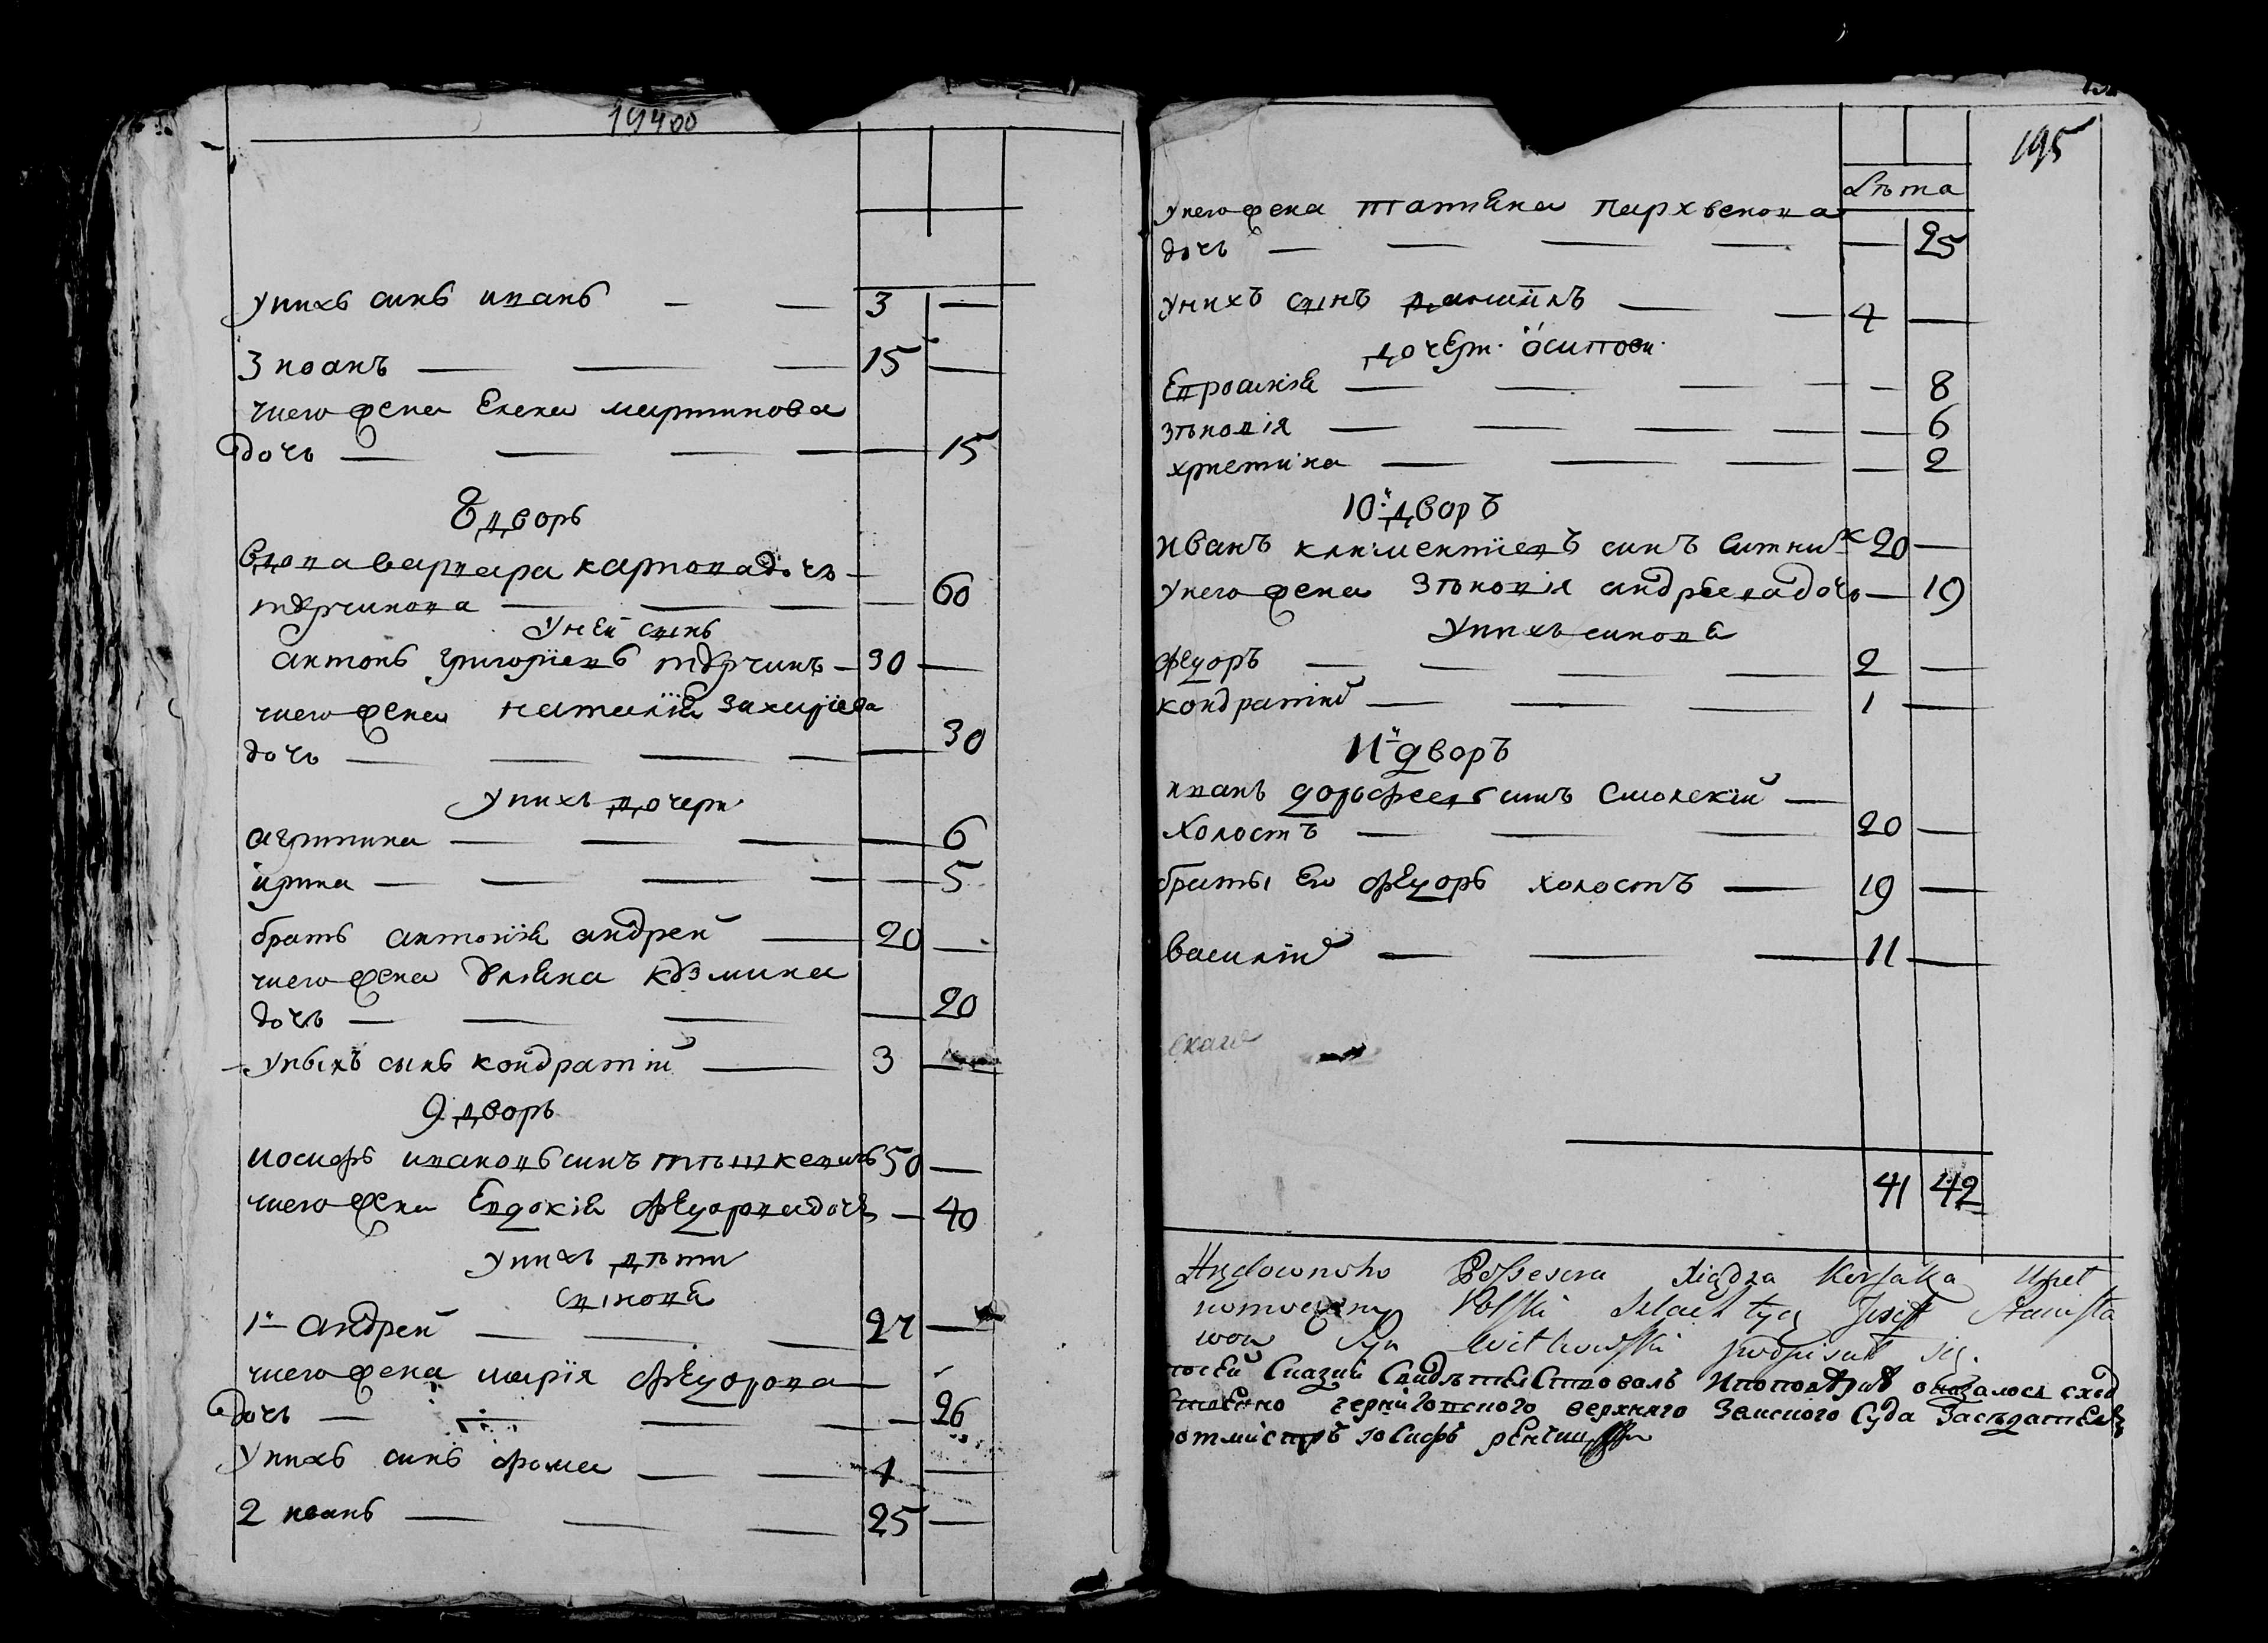 19400
унихъ синъ иванъ — — 3 —
3 иоанъ — — — 15 —
унего жена Елена мартинова
дочь — — — — — 15
8 дворъ
вдова варвара карпова дочь —
тѣрчинова — — — — 60
Уней синъ
антонъ григорïевъ тꙋрчинъ — 30 —
унего жена наталïя захарïева
дочь — — — — — 30
унихъ дочери
агрипина — — — — 6
ирина — — — — — 5
братъ антонïя андрей — 20 —
унего жена Ꙋлïяна кꙋзмина
дочь — — — — 20
уныхъ сынъ кондратïй — 3 —
9 дворъ
иосифъ ивановъ синъ тѣшкевичъ 50 —
унего жена Евдокïя фЕдорова дочь — 40
унихъ дѣти
синовя
1й андрей — — — 27 —
унего жена марïя фЕдорова —
дочь — — — — 26
Унихъ синъ фома — — 1 —
2 иванъ — — — 25 —
195
Лѣта
унего жена татïяна пархвенова
дочь — — — — — 25
унихъ синъ данïилъ — — 4 —
дочери осипови
Евросинïя — — — — — 8
зѣновïя — — — — — 6
христина — — — — 2
10й дворъ
иванъ климентïевъ синъ ситникъ 20 —
унего жена зѣновïя андрѣева дочь — 19
Унихъ синовя
фЕдоръ — — — — 2 —
кондратïй — — — 1 —
11й дворъ
иванъ дорофеевъ синъ Смолскïй —
холостъ — — — 20 —
братъя Его фЕдоръ холостъ — 19 —
василïй — — — 11 —
41 42
Possesora Xiędza Korsaka
Polski Szlachtycz Josif Stanisła
wow Syn Witkowski podpisał się.
посей Сказки Свидѣтелствовалъ Иповѣрꙋ оказалось сход
ственно чернѣговского верхняго Земского Суда Засѣдатель
ротмистръ Iосифъ